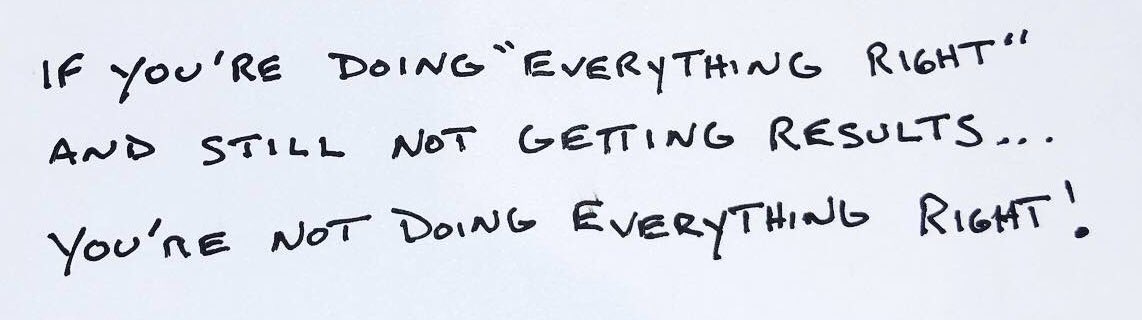 IF YOU'RE DOING "EVERYTHING RIGHT"
AND STILL NOT GETTING RESULTS...
YOU'RE NOT DOING EVERYTHING RIGHT!